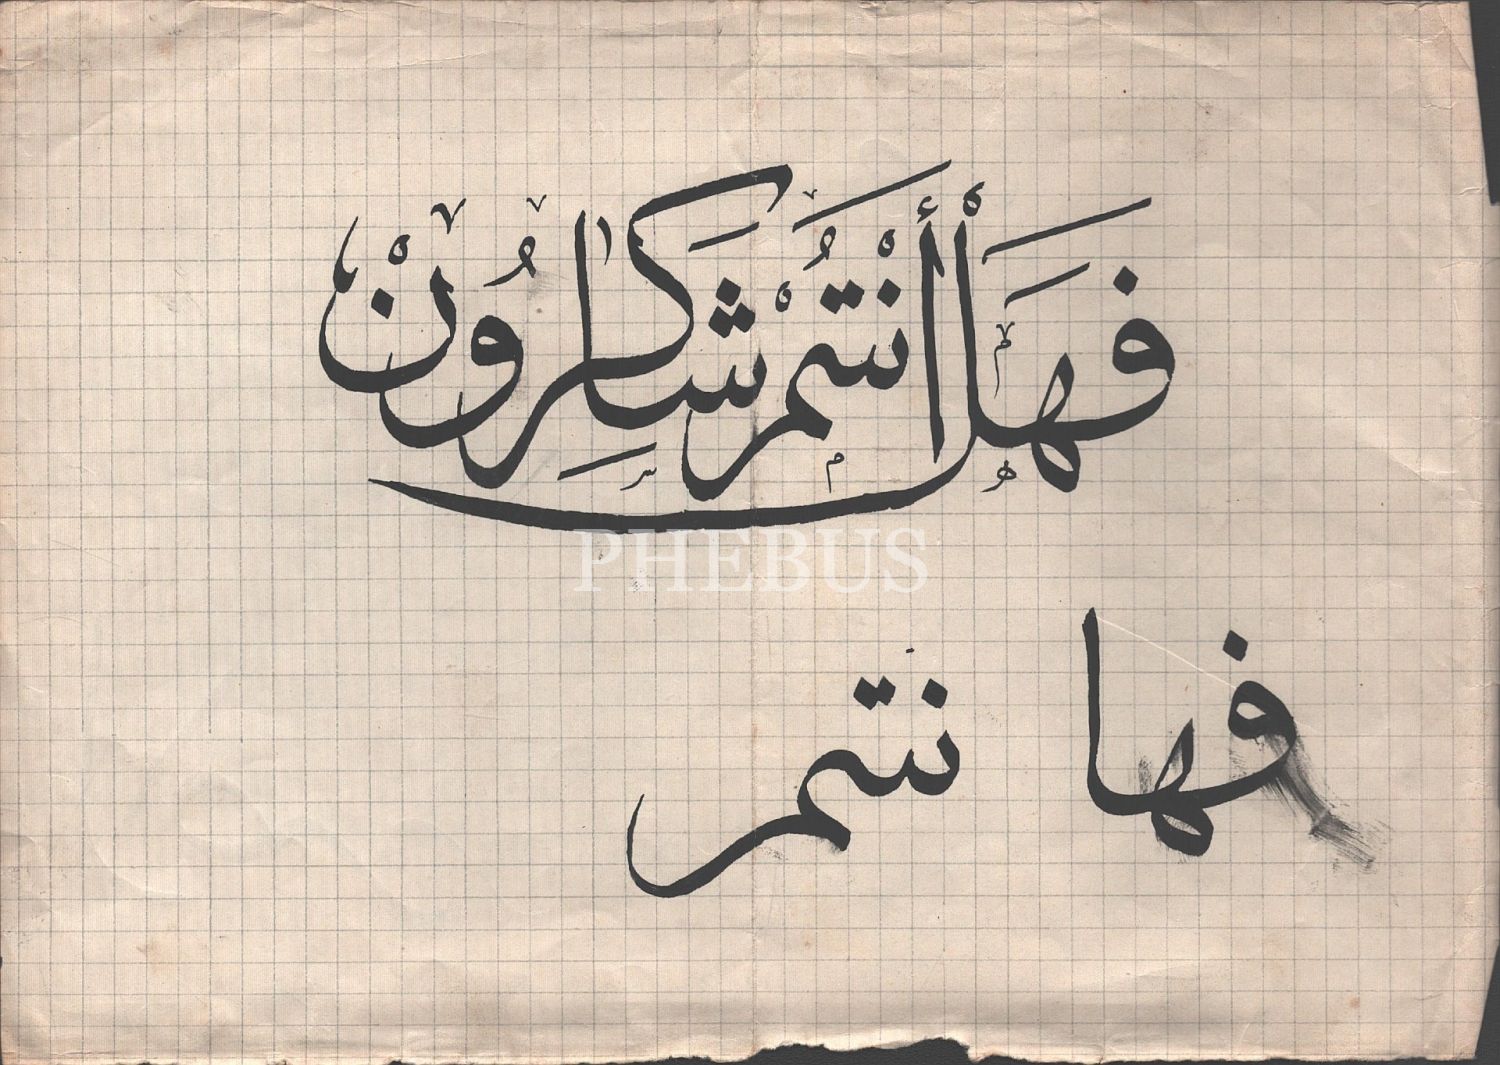 فَهَلْ أَنْتُمْ شَاكِرُونْ
PHEBUS
فها نتم